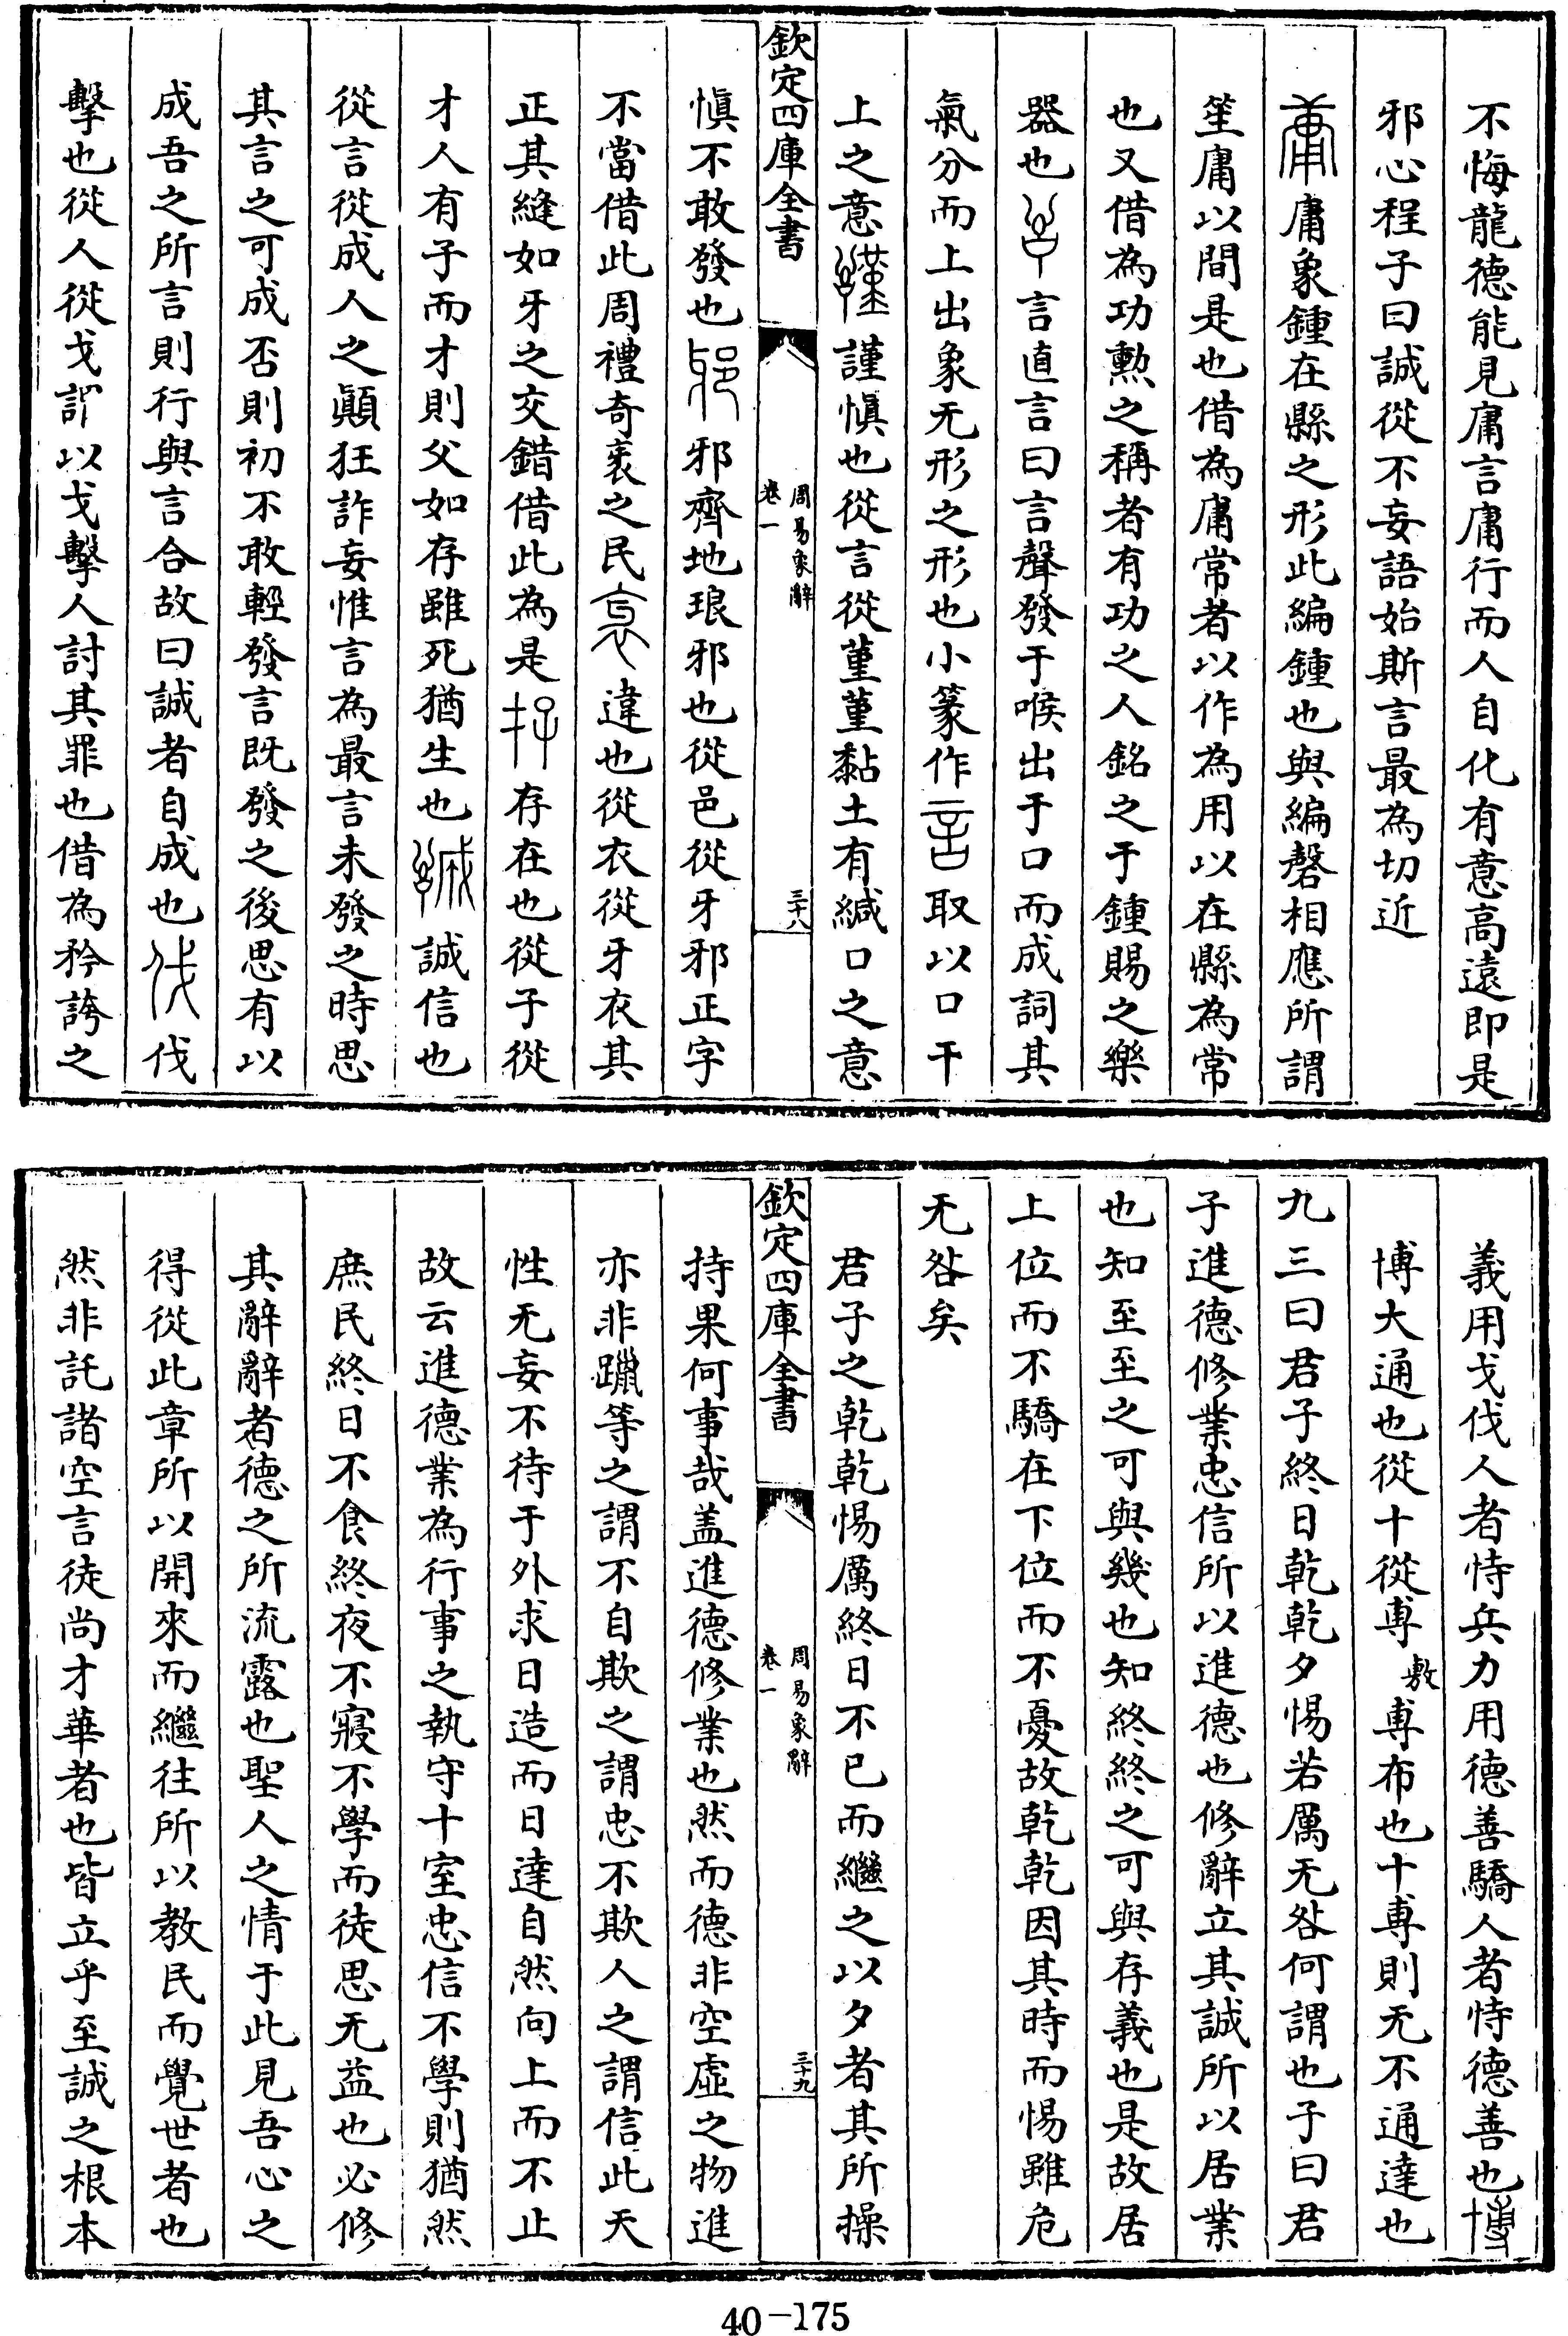 不悔龍德能見庸言庸行而人自化有意高遠即是
邪心程子曰誠從不妄語始斯言最為切近
庸象鍾在縣之形此編鍾也與編磬相應所謂
笙庸以間是也借為庸常者以作為用以在縣為常
也又借為功勲之稱者有功之人銘之于鍾賜之樂
器也言直言曰言言聲發于喉出于口而成詞其
氣分而上出象无形之形也小篆作取以口干
上之意謹慎也從言從堇堇黏土有緘口之意
欽定四庫全書
周易象辭
卷一
三十八
慎不敢發也邪齊地琅邪也從邑從牙邪正字
不當借此周禮奇衺之民違也從衣從牙衣其
正其縫如牙之交錯借此為是存在也從子從
才人有子而才則父如存雖死猶生也誠信也
從言從成人之顛狂詐妄惟言為最言未發之時思
其言之可成否則初不敢輕發言既發之後思有以
成吾之所言則行與言合故曰誠者自成也伐
擊也從人從戈謂以戈擊人討其罪也借為矜誇之
義用戈伐人者恃兵力用德善驕人者恃德善也
博大通也從十從尃敷尃布也十尃則无不通達也
九三曰君子終日乾乾夕惕若厲无咎何謂也子曰君
子進德修業忠信所以進德也修辭立其誠所以居業
也知至至之可與幾也知終終之可與存義也是故居
上位而不驕在下位而不憂故乾乾因其時而惕雖危
无咎矣
君子之乾乾惕厲終日不已而繼之以夕者其所操
欽定四庫全書
周易象辭
卷一
三十九
持果何事哉盖進德修業也然而德非空虛之物進
亦非躐等之謂不自欺之謂忠不欺人之謂信此天
性无妄不待于外求日造而日達自然向上而不止
故云進德業為行事之執守十室忠信不學則猶然
庶民終日不食終夜不寢不學而徒思无益也必修
其辭辭者德之所流露也聖人之情于此見吾心之
得從此章所以開來而繼往所以教民而覺世者也
然非託諸空言徒尚才華者也皆立乎至誠之根本
40-175